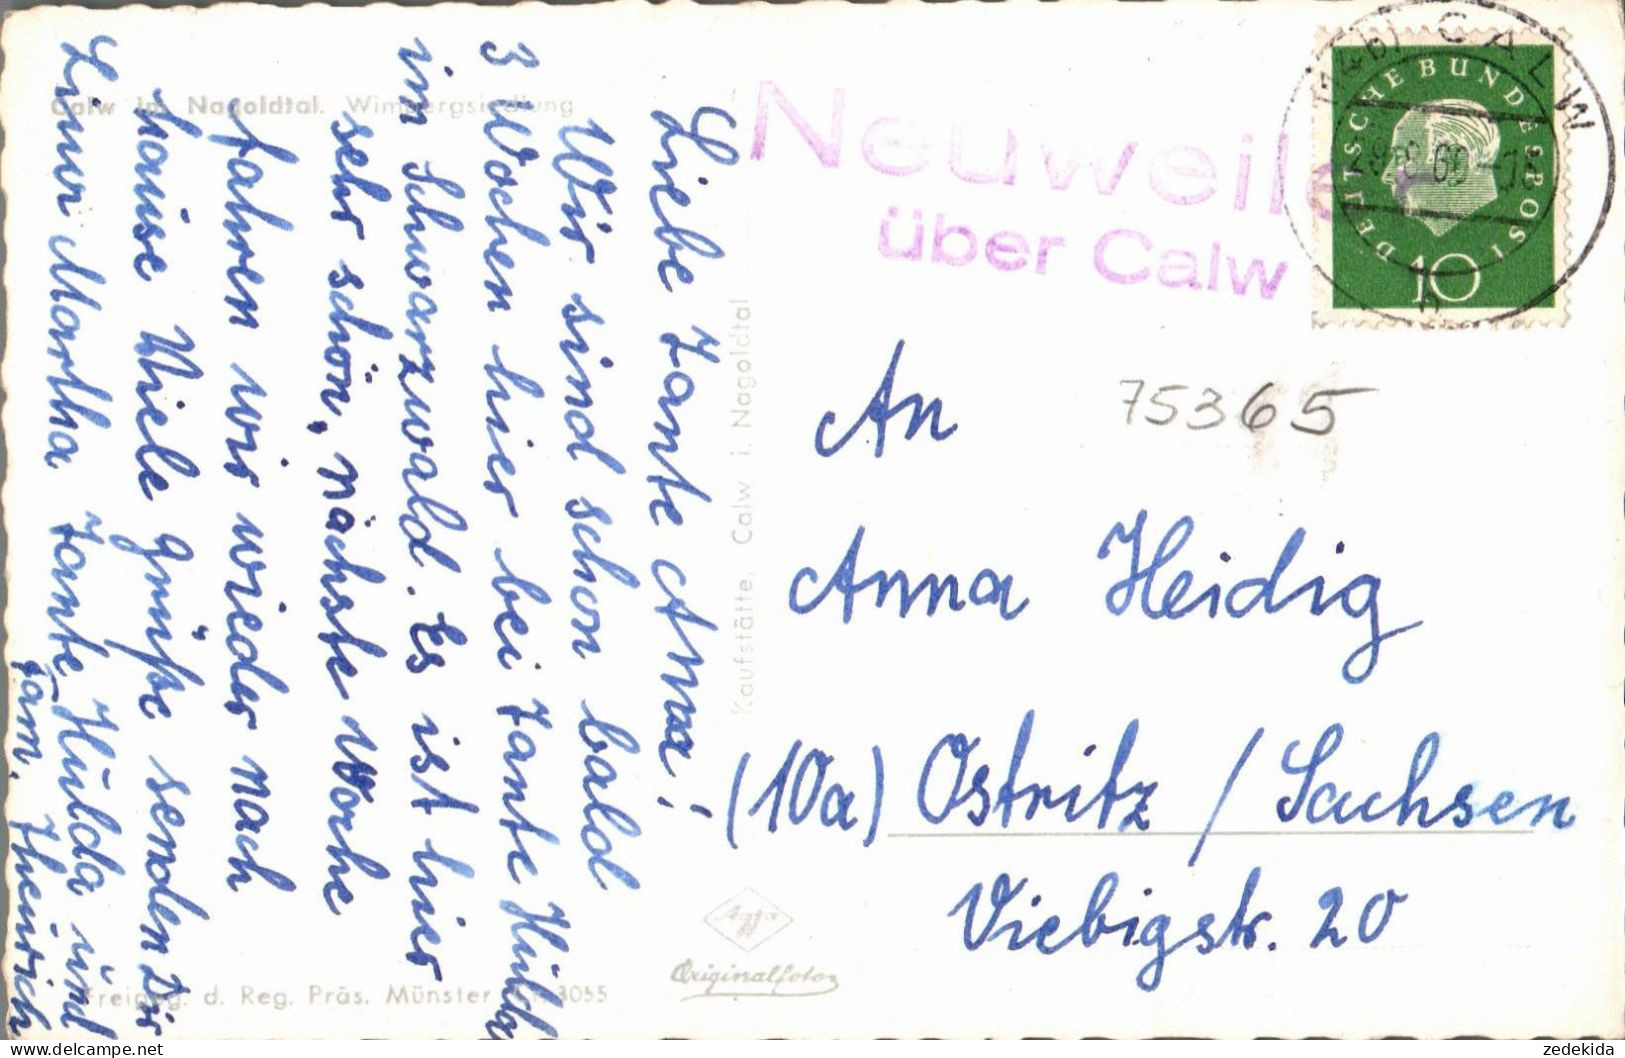 Calw im Nagoldtal. Wimbergsiedlung
Liebe Tante Anna!
Wir sind schon bald
3 Wochen hier bei Tante Hulda
im Schwarzwald. Es ist hier
sehr schön, nächste Woche
fahren wir wieder nach
hause Viele grüße senden Dir
Linus Martha Tante Hulda und
Fam. Theurich
Kaufstätte, Calw i. Nagoldtal
Freigeg. d. Reg. Präs. Münster 3055
Agfa
Originalfoto
Neuweiler
über Calw
(14b) CALW
-9 60-18
h
DEUTSCHE BUNDESPOST
10
75365
An
Anna Heidig
(10a) Ostritz / Sachsen
Viebigstr. 20
zedekida